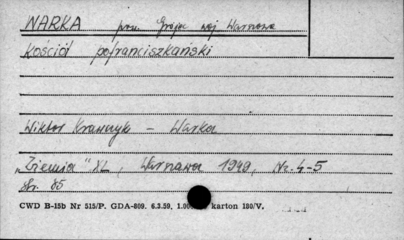 WARKA pow. Grójec woj. Warszawa
Kościół pofranciszkański
Wiktor Krawczyk – Warka
„Ziemia" XL, Warszawa 1949, Nr. 4-5
Str. 85
CWD B-15b Nr 515/P. GDA-809. 6.3.59, 1.00 karton 180/V.